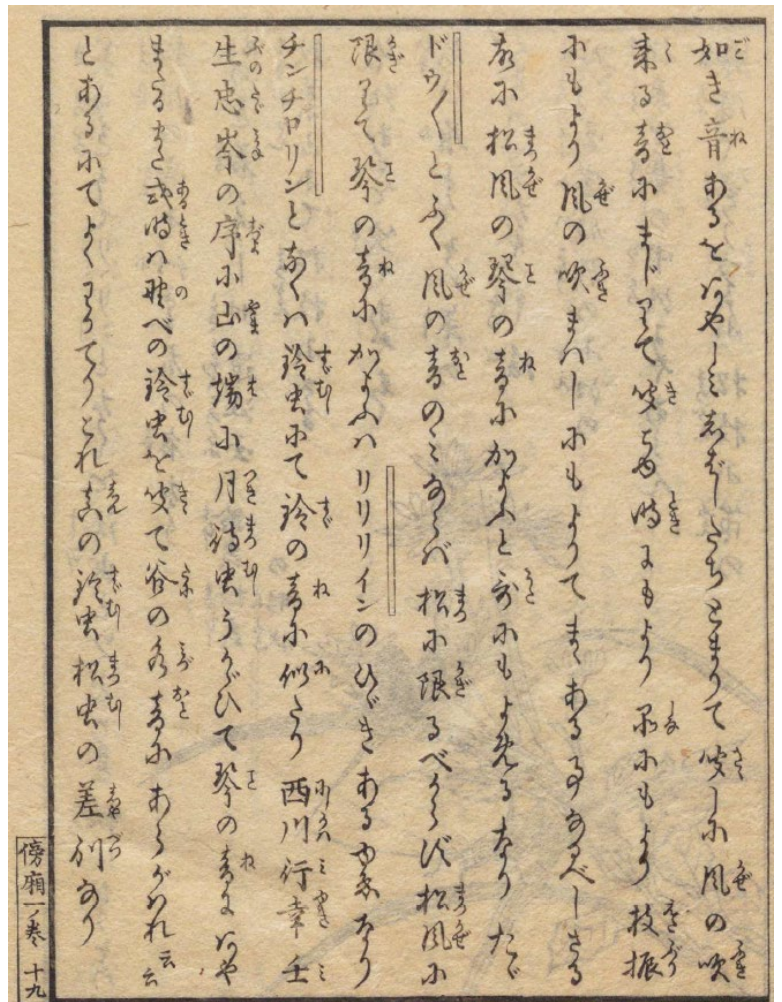 如き音あるをあやしミしばしたちとまりて聞しに風の吹
来る音にまじりて聞ゆ時にもより品にもより枝振
にもより風の吹まハしにもよりてまゝある事なるべしさる
故に松風の琴の音にかよふと歌にもよめるなりたゞ
ドウ〳〵とふく風の音のミならバ松に限るべからず松風に
限りて琴の音にかよふハリリリインのひゞきあるゆゑなり
チンチロリンとなくハ鈴虫にて鈴の音に似たり西川行幸壬
生忠岑の序に山の端に月待虫うかゞひて琴の音にあや
またるまた或時ハ野べの鈴虫を聞て谷の水音にあらがハれ云云
とあるにてよくわかてりこれ真の鈴虫松虫の差別なり
傍廂一ノ巻 十九